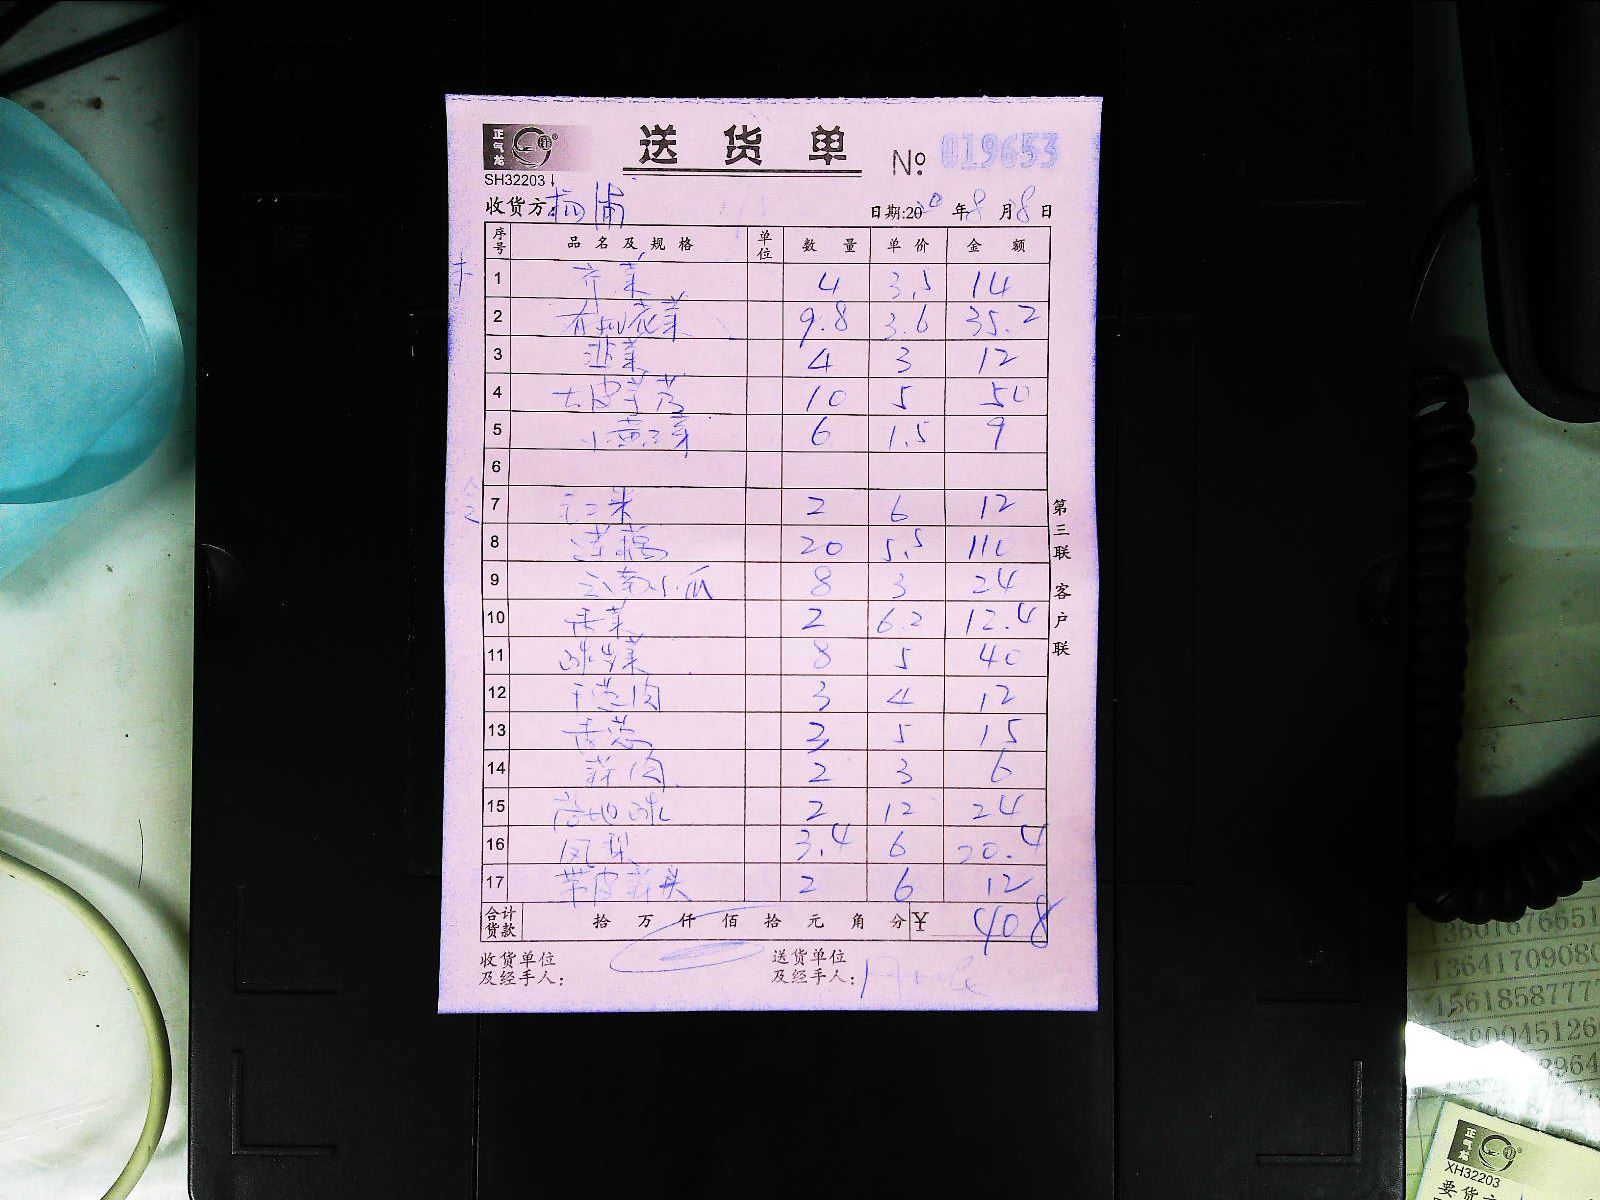 正气龙
SH32203
送货单 № 019653
收货方: 杨浦 日期:2020年8月8日
序号 品名及规格 单位 数量 单价 金额
1 齐菜 4 3.5 14
2 有机花菜 9.8 3.6 35.2
3 韭菜 4 3 12
4 去皮芋艿 10 5 50
5 小黄豆芽 6 1.5 9
6
7 毛豆米 2 6 12
8 茭白 20 5.5 110
9 云南小瓜 8 3 24
10 香菜 2 6.2 12.4
11 冰菜 8 5 40
12 干葱肉 3 4 12
13 香葱 3 5 15
14 蒜肉 2 3 6
15 2 12 24
16 凤梨 3.4 6 20.4
17 带皮蒜头 2 6 12
合计货款 拾万仟佰拾元角分 ¥ 408
收货单位及经手人: 送货单位及经手人:
第三联 客户联
13601676651
13641709080
1561858777
5900451260
8964
正气龙
XH32203
要货